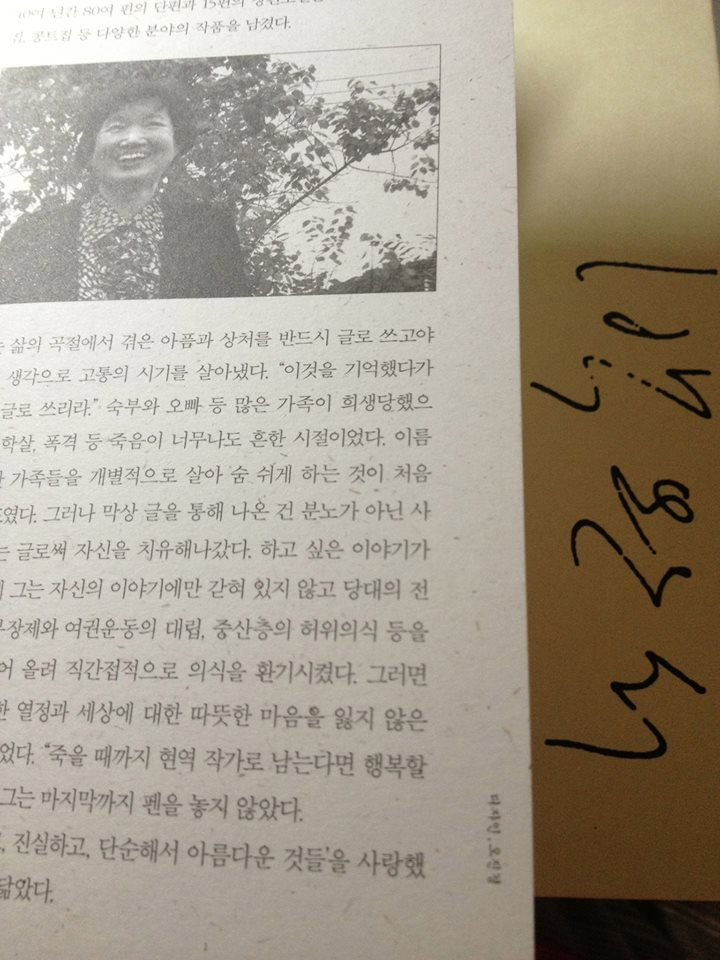 10여 년간 80여 편의 단편과 15편의
집, 콩트집 등 다양한 분야의 작품을 남겼다.
는 삶의 곡절에서 겪은 아픔과 상처를 반드시 글로 쓰고야
생각으로 고통의 시기를 살아냈다. “이것을 기억했다가
글로 쓰리라.” 숙부와 오빠 등 많은 가족이 희생당했으
학살, 폭격 등 죽음이 너무나도 흔한 시절이었다. 이름
가족들을 개별적으로 살아 숨 쉬게 하는 것이 처음
였다. 그러나 막상 글을 통해 나온 건 분노가 아닌 사
는 글로써 자신을 치유해나갔다. 하고 싶은 이야기가
그는 자신의 이야기에만 갇혀 있지 않고 당대의 전
부장제와 여권운동의 대립, 중산층의 허위의식 등을
어 올려 직간접적으로 의식을 환기시켰다. 그러면
한 열정과 세상에 대한 따뜻한 마음을 잃지 않은
었다. “죽을 때까지 현역 작가로 남는다면 행복할
그는 마지막까지 펜을 놓지 않았다.
, 진실하고, 단순해서 아름다운 것들’을 사랑했
닮았다.
디자인·오진경